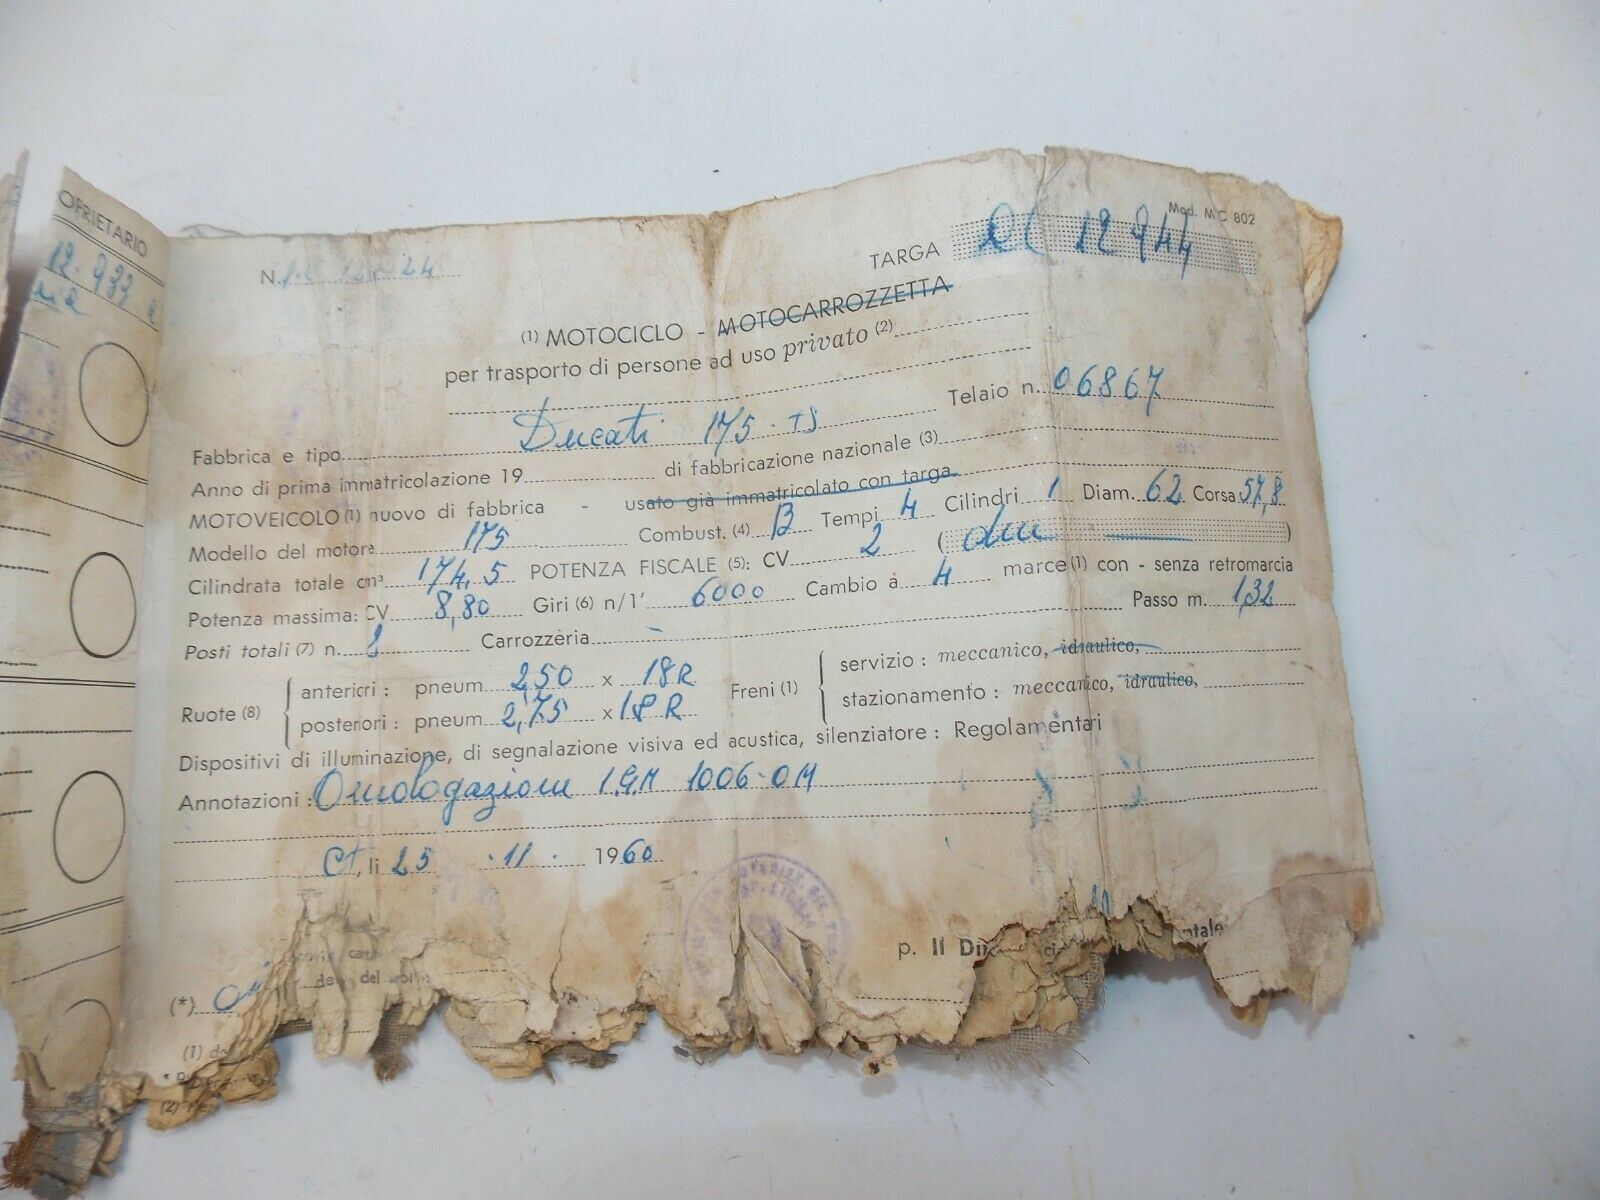 OPRIETARIO
12.933
Mod. MC 802
N.
TARGA 12944
(1) MOTOCICLO - MOTOCARROZZETTA
per trasporto di persone ad uso privato (2)
Fabbrica e tipo Ducati 175 TS Telaio n. 06867
Anno di prima immatricolazione 19 di fabbricazione nazionale (3)
MOTOVEICOLO (1) nuovo di fabbrica - usato già immatricolato con targa
Modello del motore 175 Combust. (4) B Tempi 4 Cilindri 1 Diam. 62 Corsa 57,8
Cilindrata totale cm³ 174,5 POTENZA FISCALE (5): CV 2 ( due )
Potenza massima: CV 8,80 Giri (6) n/1' 6000 Cambio a 4 marce (1) con - senza retromarcia
Posti totali (7) n. 2 Carrozzeria - Passo m. 1,32
Ruote (8) anteriori: pneum 2,50 x 18 R Freni (1) servizio: meccanico, idraulico,
posteriori: pneum 2,75 x 18 R stazionamento: meccanico, idraulico,
Dispositivi di illuminazione, di segnalazione visiva ed acustica, silenziatore: Regolamentari
Annotazioni: Omologazione I.G.M 1006.OM
CT, li 25.11. 1960
p. Il Di
(*)
(1)
(2)